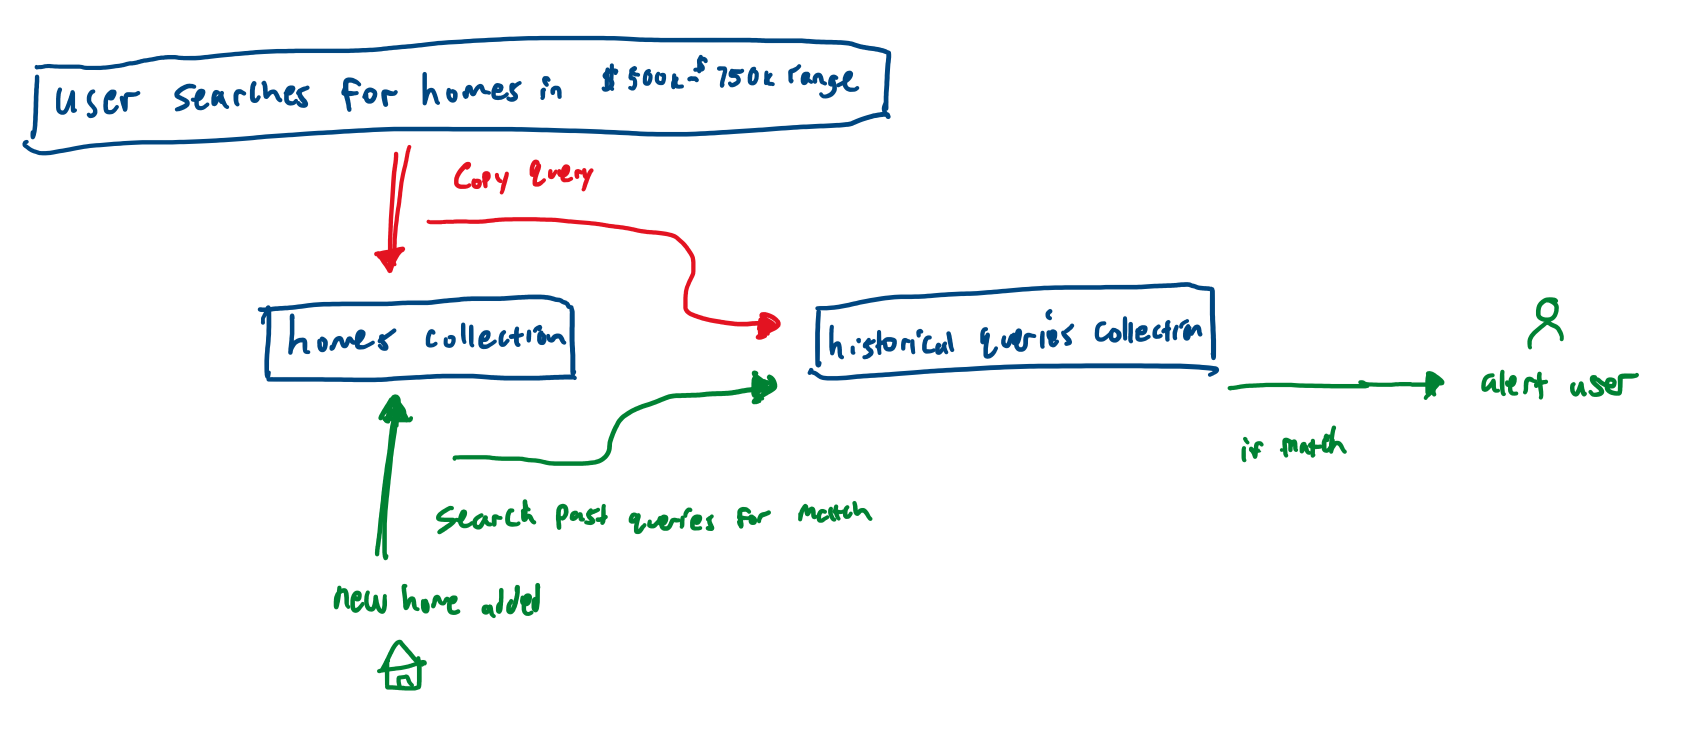 user searches for homes in $500k-$750k range
Copy query
homes collection
historical queries collection
alert user
if match
search past queries for match
new home added